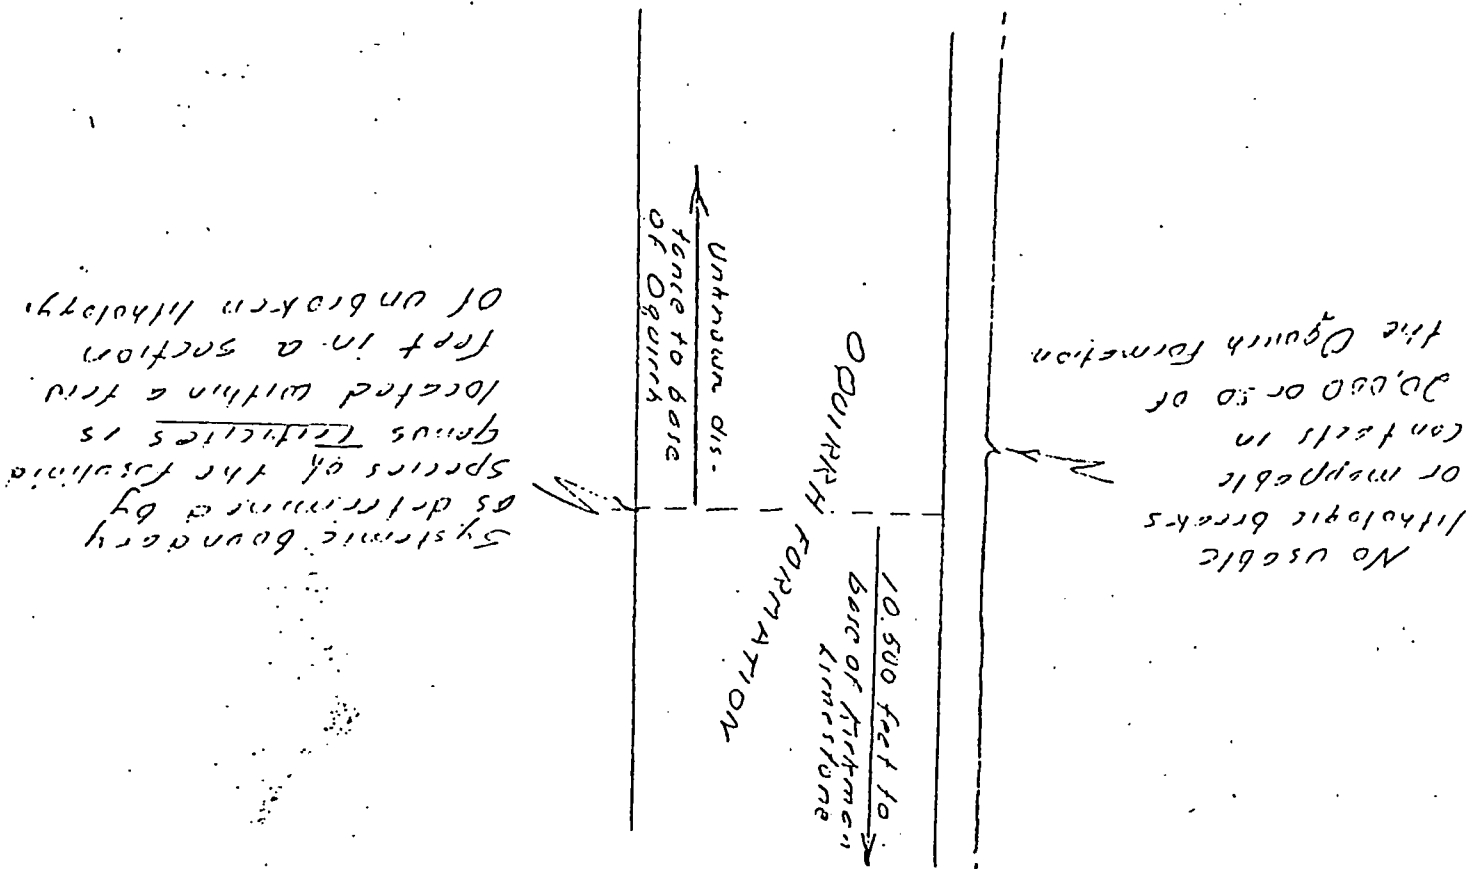 No usable
lithologic breaks
or mappable
contacts in
20,000 or so of
the Oquirrh formation
10,500 feet to
base of Kirkman
limestone
OQUIRRH FORMATION
Unknown dis-
tance to base
of Oquirrh
Systemic boundary
as determined by
species of the fusulinid
genus Triticites is
located within a few
feet in a section
of unbroken lithology.